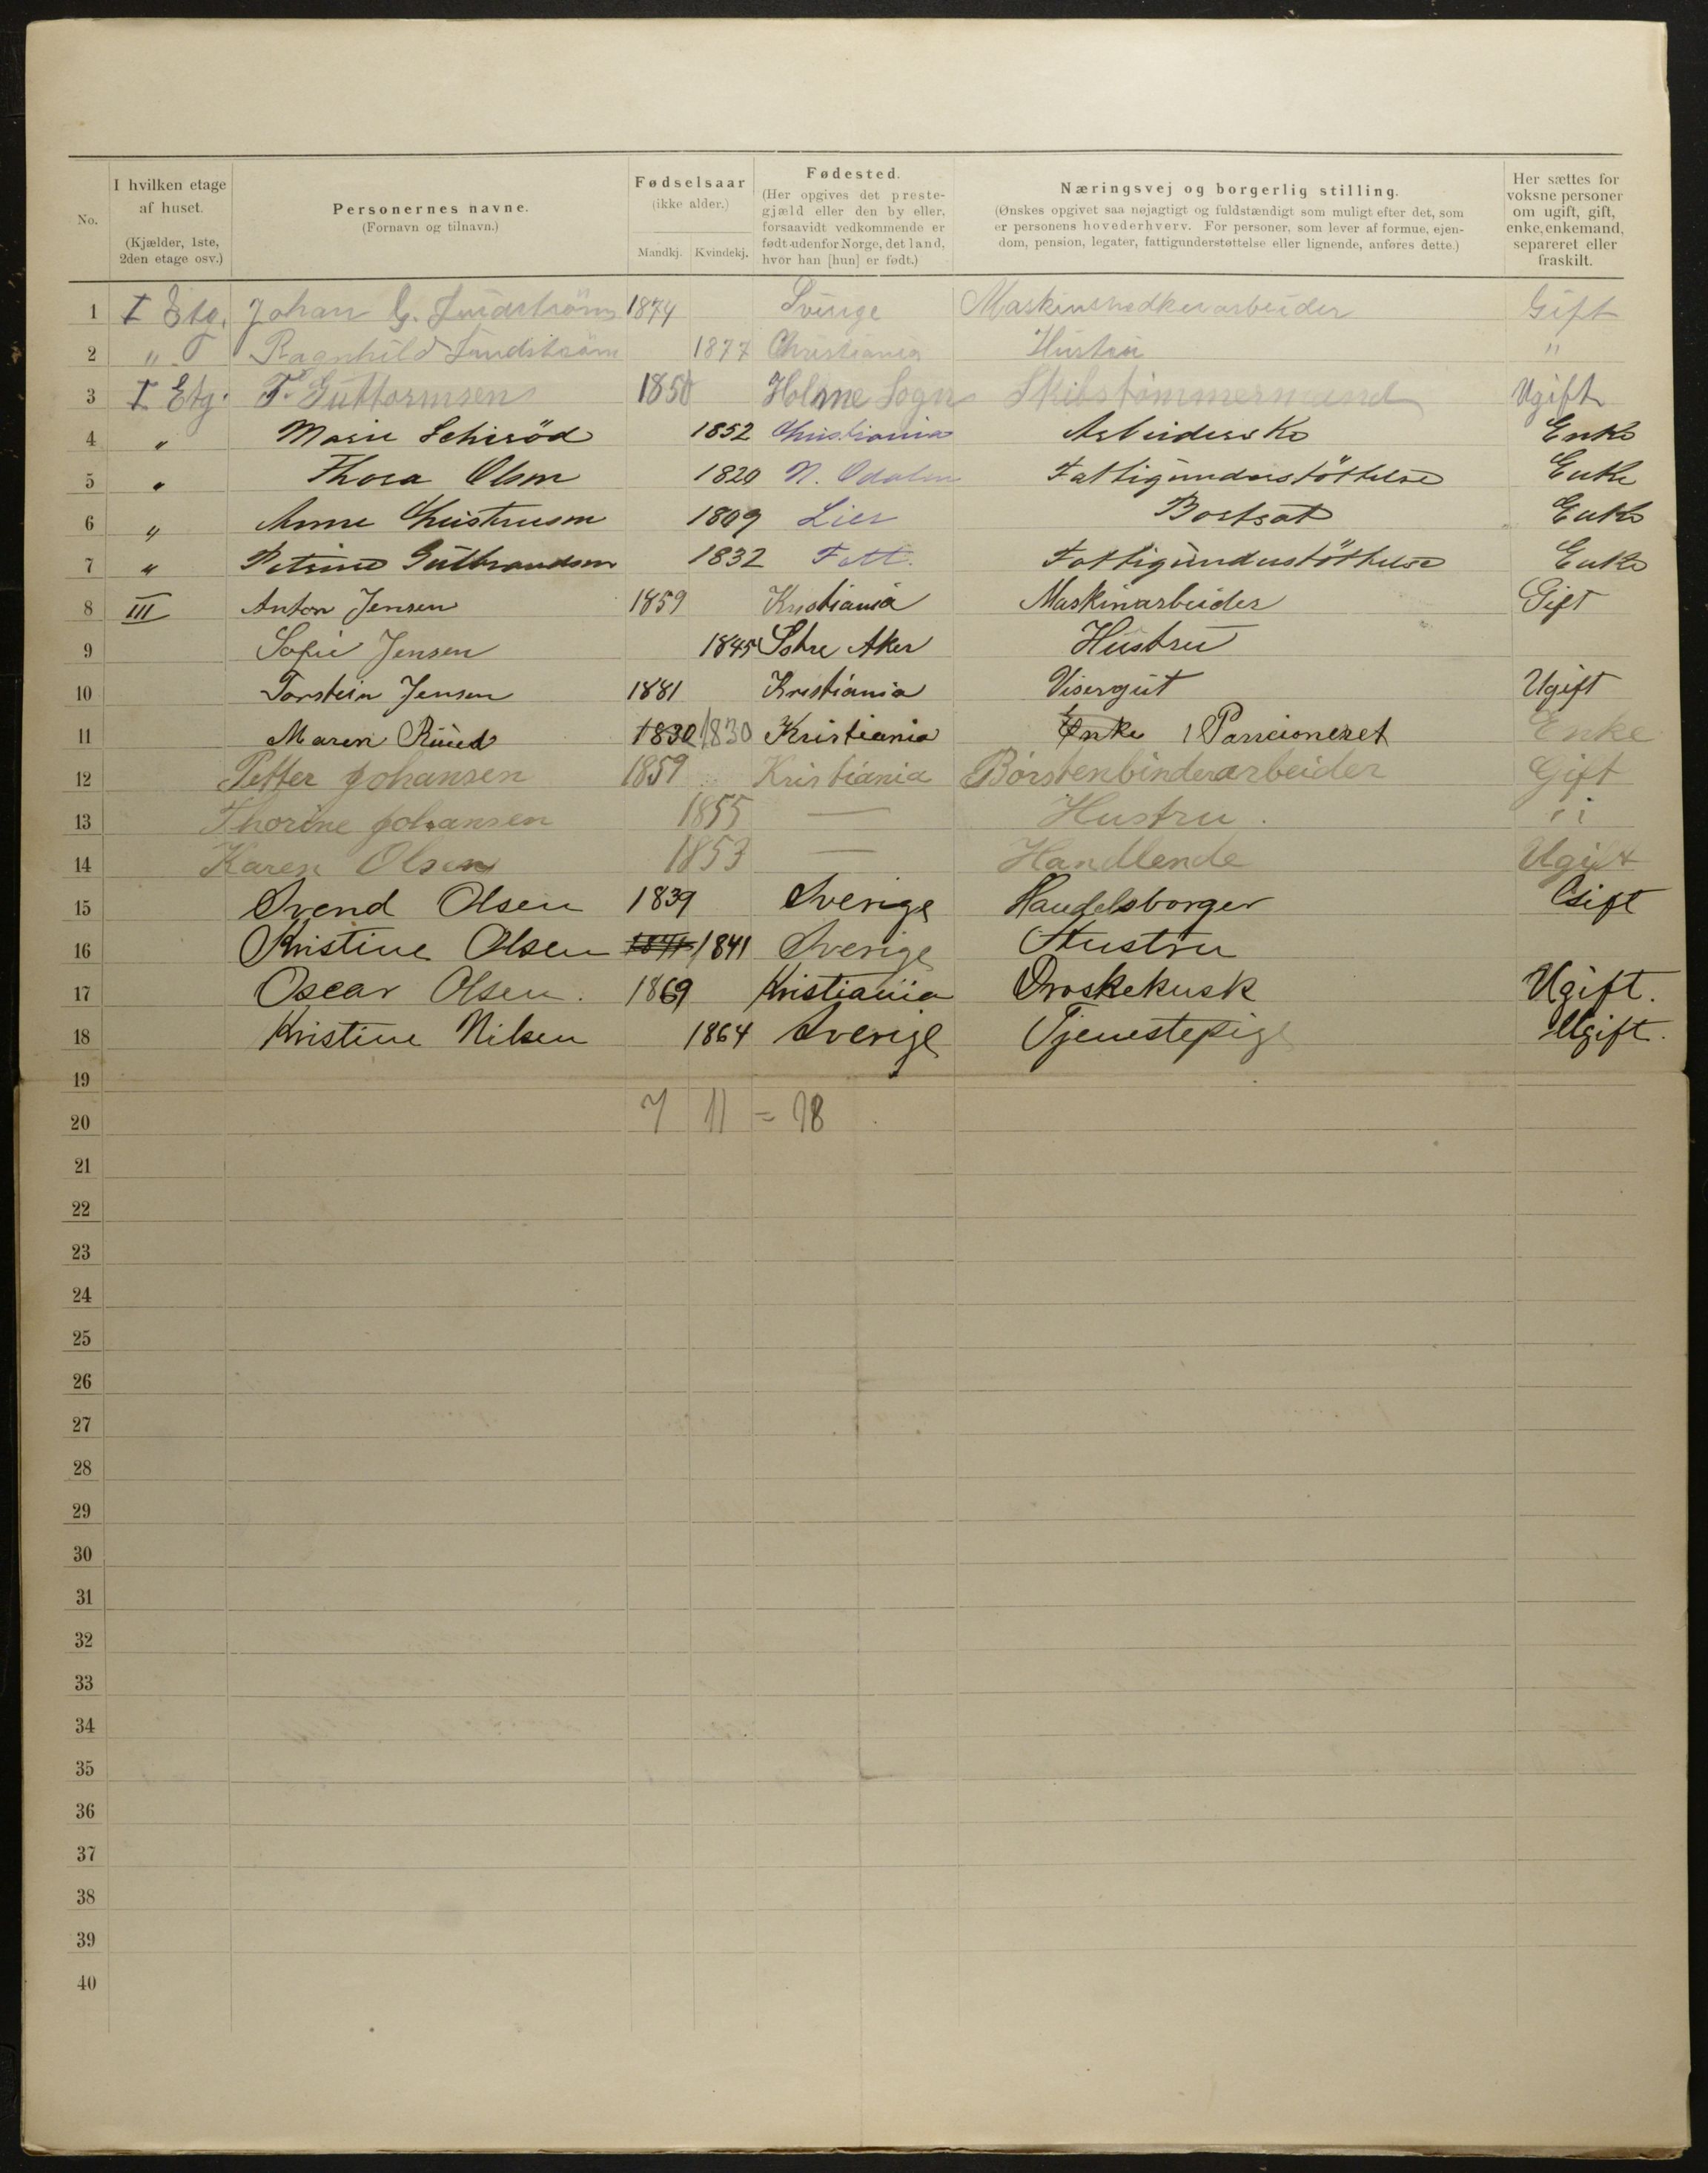 No. I hvilken etage af huset. (Kjælder, 1ste, 2den etage osv.) Personernes navne. (Fornavn og tilnavn.) Fødselsaar (ikke alder.) Mandkj. Kvindekj. Fødested. (Her opgives det prestegjæld eller den by eller, forsaavidt vedkommende er født udenfor Norge, det land, hvor han [hun] er født.) Næringsvej og borgerlig stilling. (Ønskes opgivet saa nøjagtigt og fuldstændigt som muligt efter det, som er personens hovederhverv. For personer, som lever af formue, ejendom, pension, legater, fattigunderstøttelse eller lignende, anføres dette.) Her sættes for voksne personer om ugift, gift, enke, enkemand, separeret eller fraskilt.
1 I Etg. Johan G. Lundström 1874 Sverige Gift
2 " Ragnhild Lundström 1877 Christiania Hustru "
3 I Etg. T. Guttormsen 1850 Holme Sogn Skibstømmermand Ugift
4 " Marie 1852 Christiania Enke
5 " Thora Olsen 1820 N. Odalen Fattigunderstöttelse Enke
6 " Anne Christensen 1809 Lier Bortsat Enke
7 " Petrine Gulbrandsen 1832 Fattigunderstöttelse Enke
8 III Anton Jensen 1859 Kristiania Maskinarbeider Gift
9 Sofie Jensen 1845 Aker Hustru
10 Torstein Jensen 1881 Kristiania Visergut Ugift
11 Maren Ruud 1830 1830 Kristiania Enke Pancioneret Enke
12 Petter Johansen 1859 Kristiania Børstenbinderarbeider Gift
13 Thorine Johansen 1855 — Hustru . "
14 Karen Olsen 1853 — Handlende Ugift
15 Svend Olsen 1839 Sverige Handelsborger Gift
16 Kristine Olsen 1841 1841 Sverige Hustru
17 Oscar Olsen. 1869 Kristiania Droskekusk Ugift.
18 Kristine Nilsen 1864 Sverige Tjenestepige Ugift.
19
20 7 11 = 18
21
22
23
24
25
26
27
28
29
30
31
32
33
34
35
36
37
38
39
40